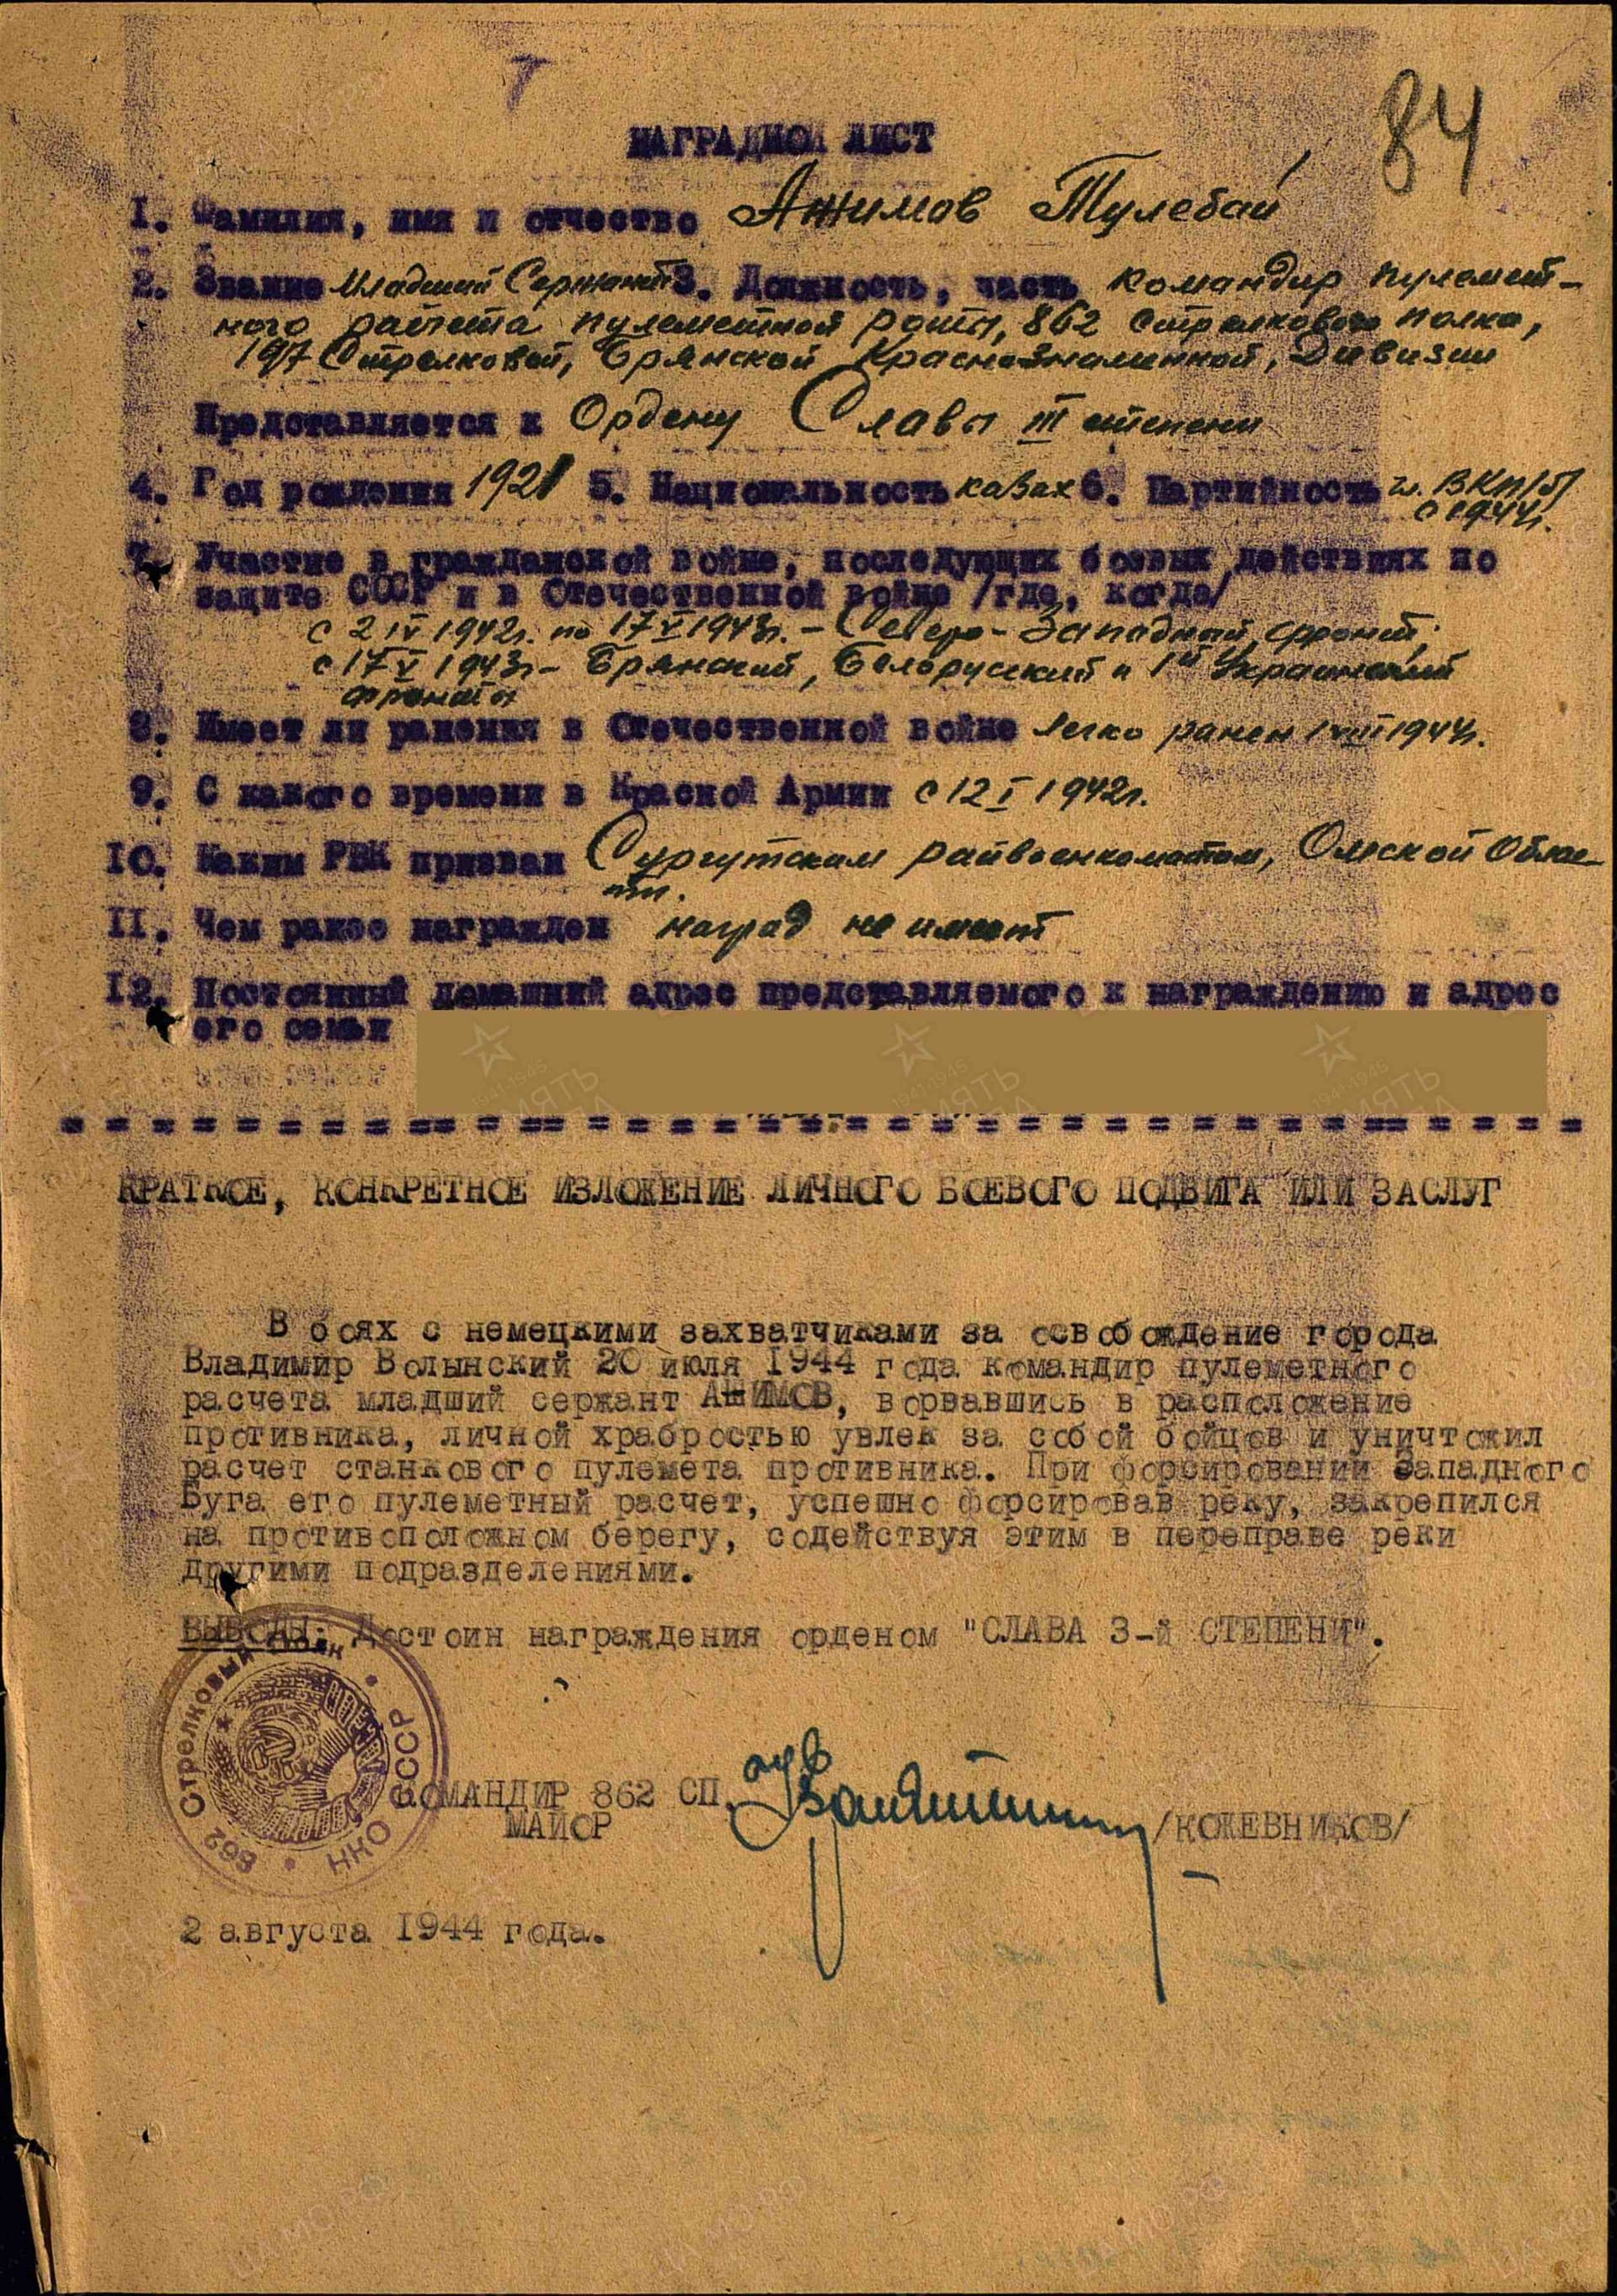 84
НАГРАДНОЙ ЛИСТ
I. Фамилия, имя и отчество Ажимов Тулебай
2. Звание Младший Сержант 3. Должность, часть командир пулемет-
ного расчета пулеметной роты, 862 стрелкового полка,
197 Стрелковой, Брянской Краснознаменной, Дивизии
Представляется к Ордену Славы III степени
4. Год рождения 1921 5. Национальность казах 6. Партийность чл. ВКП/б/
с 1944г.
7. Участие в гражданской войне, последующих боевых действиях по
защите СССР и в Отечественной войне /где, когда/
с 2 IV 1942г. по 17 V 1943г. – Северо-Западный фронт;
с 17 V 1943г – Брянский, Белорусский и 1й Украинский
фронты
8. Имеет ли ранения в Отечественной войне легко ранен 1 VIII 1944г.
9. С какого времени в Красной Армии с 12 I 1942г.
10. Каким РВК призван Сургутским райвоенкоматом, Омской Облас-
ти.
II. Чем ранее награжден наград не имеет
12. Постоянный домашний адрес представляемого к награждению и адрес
его семьи
КРАТКОЕ, КОНКРЕТНОЕ ИЗЛОЖЕНИЕ ЛИЧНОГО БОЕВОГО ПОДВИГА ИЛИ ЗАСЛУГ
В боях с немецкими захватчиками за освобождение города
Владимир Волынский 20 июля 1944 года командир пулеметного
расчета младший сержант АЖИМОВ, ворвавшись в расположение
противника, личной храбростью увлек за собой бойцов и уничтожил
расчет станкового пулемета противника. При форсировании Западного
Буга его пулеметный расчет, успешно форсировав реку, закрепился
на противоположном берегу, содействуя этим в переправе реки
другими подразделениями.
ВЫВОДЫ: Достоин награждения орденом "СЛАВА 3-й СТЕПЕНИ".
862 Стрелковый полк * НКО СССР
КОМАНДИР 862 СП.
МАЙОР /КОЖЕВНИКОВ/
2 августа 1944 года.